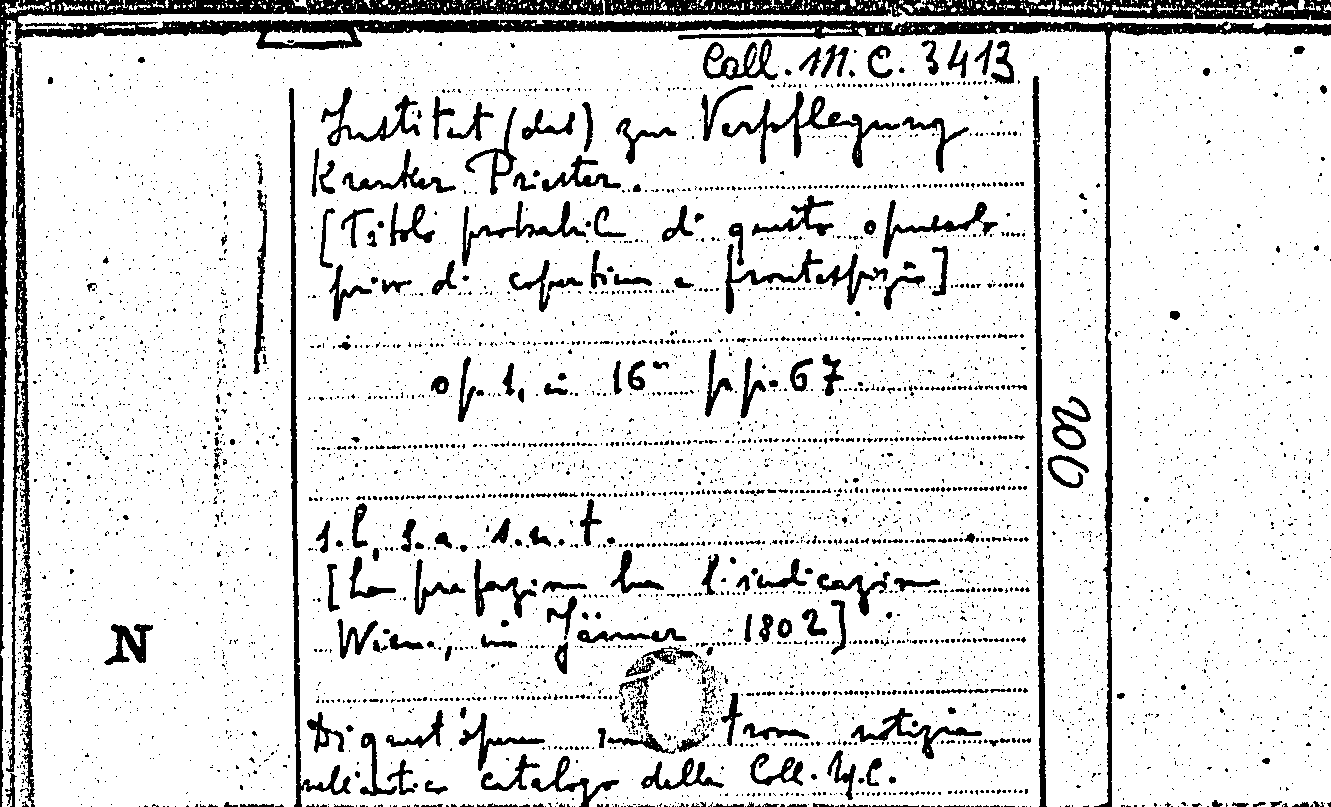 Coll. M. C. 3413
Institut (das) zur Verpflegung
Kranker Priester.
[Titolo probabile di questo opuscolo
privo di copertina e frontespizio]
op. 1, in 16° pp. 67
s.l., s.a. s.n.t.
[La prefazione ha l'indicazione
Wien, im Jänner, 1802]
N
Di quest'opera trova notizia
nell'antico catalogo della Coll. M.C.